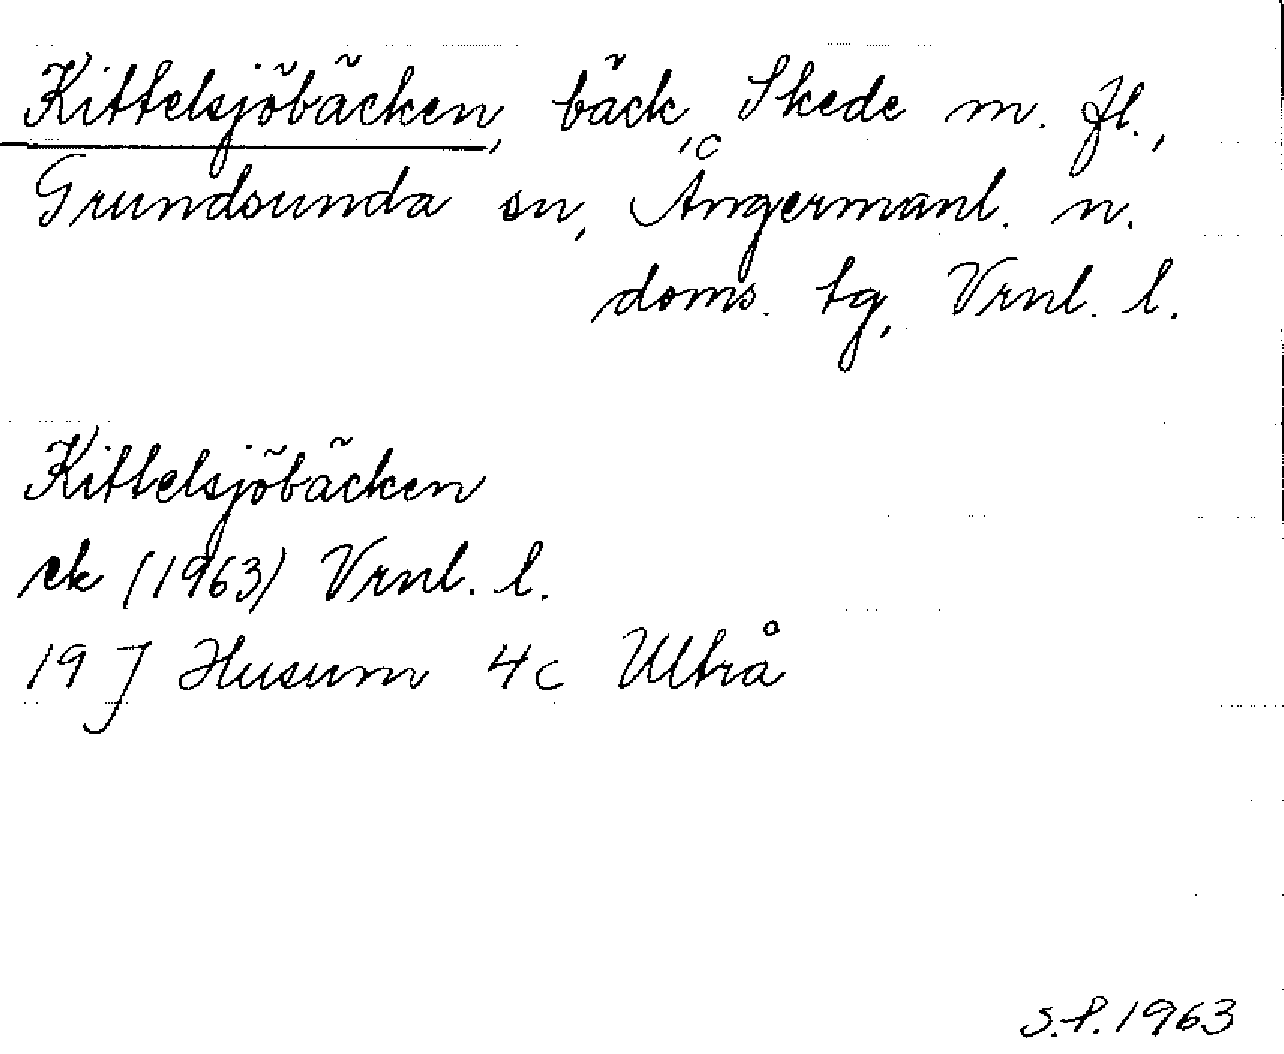 Kittelsjöbäcken, bäck, Skede m. fl.,
Grundsunda sn, Ångermanl. n.
doms. tg, Vrnl. l.
Kittelsjöbäcken
ek (1963) Vrnl. l.
19 J Husum 4c Ultrå
S.P. 1963